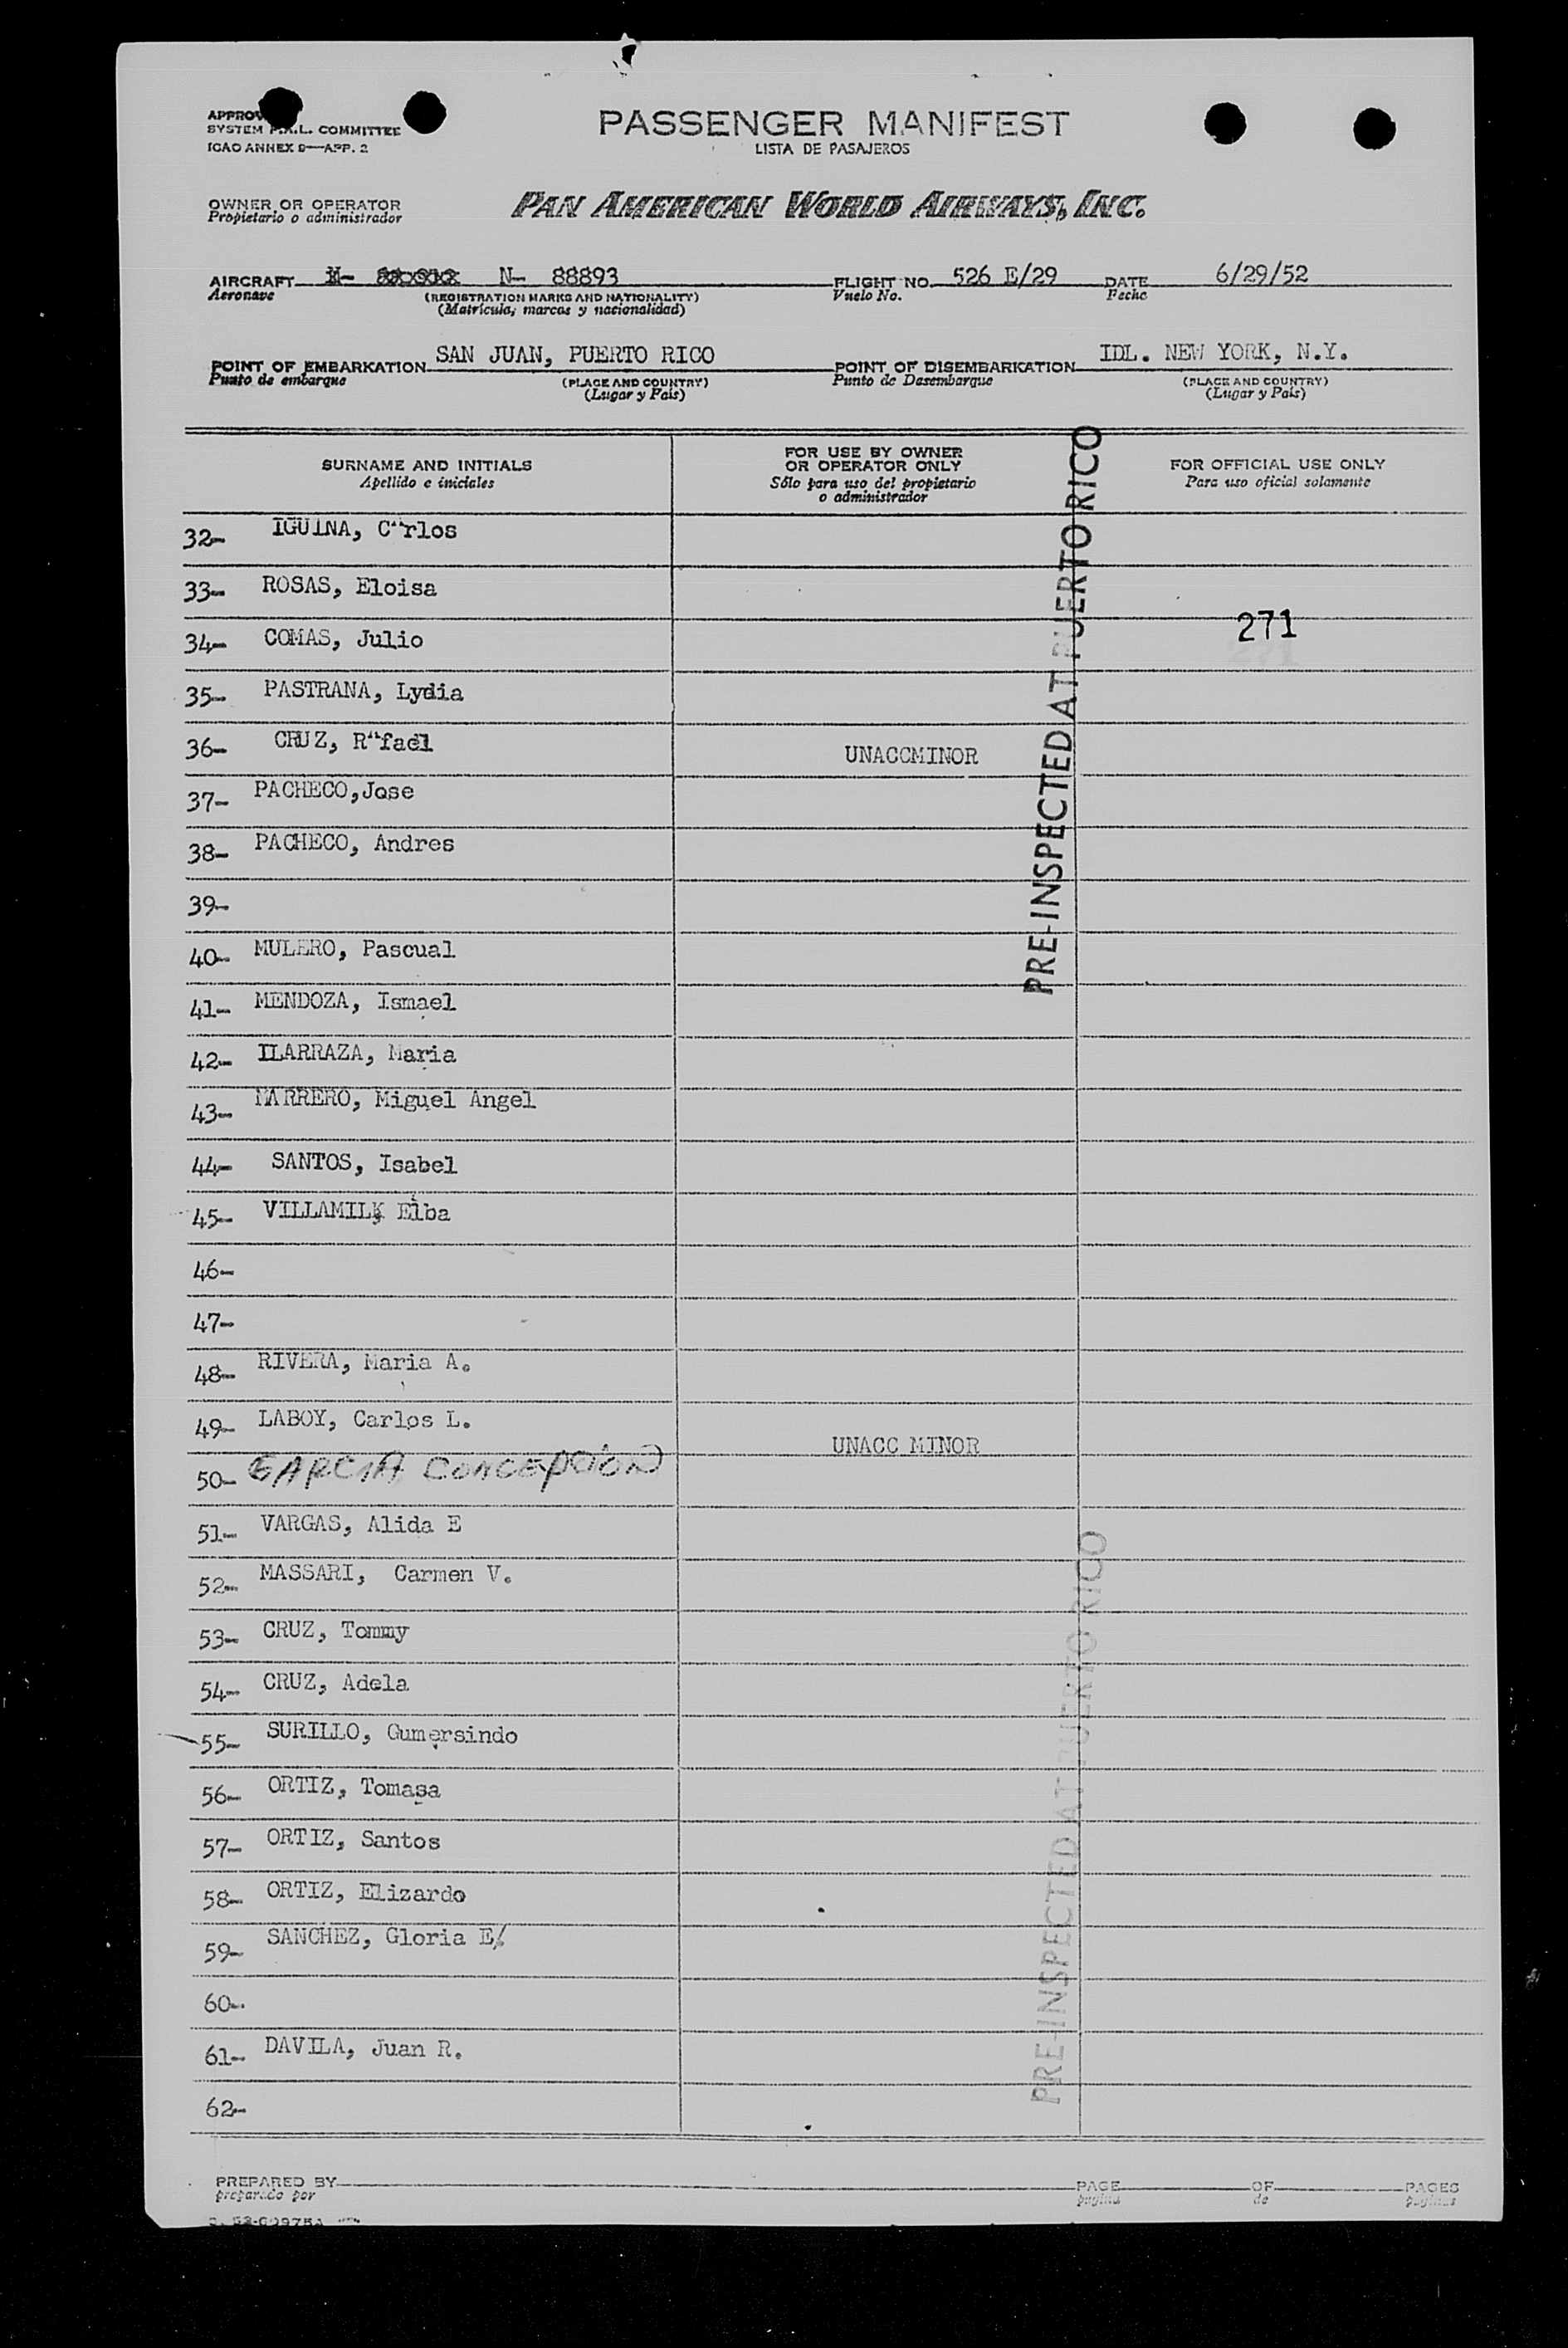 PASSENGER MANIFEST
LISTA DE PASAJEROS
SYSTEM F.A.L. COMMITTEE
ICAO ANNEX 9—APP. 2
OWNER OR OPERATOR
Propietario o administrador
PAN AMERICAN WORLD AIRWAYS, INC.
AIRCRAFT N- N- 88893 FLIGHT NO. 526 E/29 DATE 6/29/52
Aeronave (REGISTRATION MARKS AND NATIONALITY) Vuelo No. Fecha
(Matrícula, marcas y nacionalidad)
POINT OF EMBARKATION SAN JUAN, PUERTO RICO POINT OF DISEMBARKATION IDL. NEW YORK, N.Y.
Punto de embarque (PLACE AND COUNTRY) Punto de Desembarque (PLACE AND COUNTRY)
(Lugar y País) (Lugar y País)
SURNAME AND INITIALS
Apellido e iniciales
FOR USE BY OWNER
OR OPERATOR ONLY
Sólo para uso del propietario
o administrador
FOR OFFICIAL USE ONLY
Para uso oficial solamente
PRE-INSPECTED AT PUERTO RICO
32- IGUINA, Carlos
33- ROSAS, Eloisa
34- COMAS, Julio 271
35- PASTRANA, Lydia
36- CRUZ, Rafael UNACCMINOR
37- PACHECO,Jose
38- PACHECO, Andres
39-
40- MULERO, Pascual
41- MENDOZA, Ismael
42- ILARRAZA, Maria
43- MARRERO, Miguel Angel
44- SANTOS, Isabel
45- VILLAMIL, Elba
46-
47-
48- RIVERA, Maria A.
49- LABOY, Carlos L. UNACC MINOR
50- GARCIA CONCEPCION
51- VARGAS, Alida E
52- MASSARI, Carmen V.
53- CRUZ, Tommy
54- CRUZ, Adela
55- SURILLO, Gumersindo
56- ORTIZ, Tomasa
57- ORTIZ, Santos
58- ORTIZ, Elizardo
59- SANCHEZ, Gloria E/.
60-
61- DAVILA, Juan R.
62-
PRE-INSPECTED AT PUERTO RICO
PREPARED BY PAGE OF PAGES
preparado por pagina de paginas